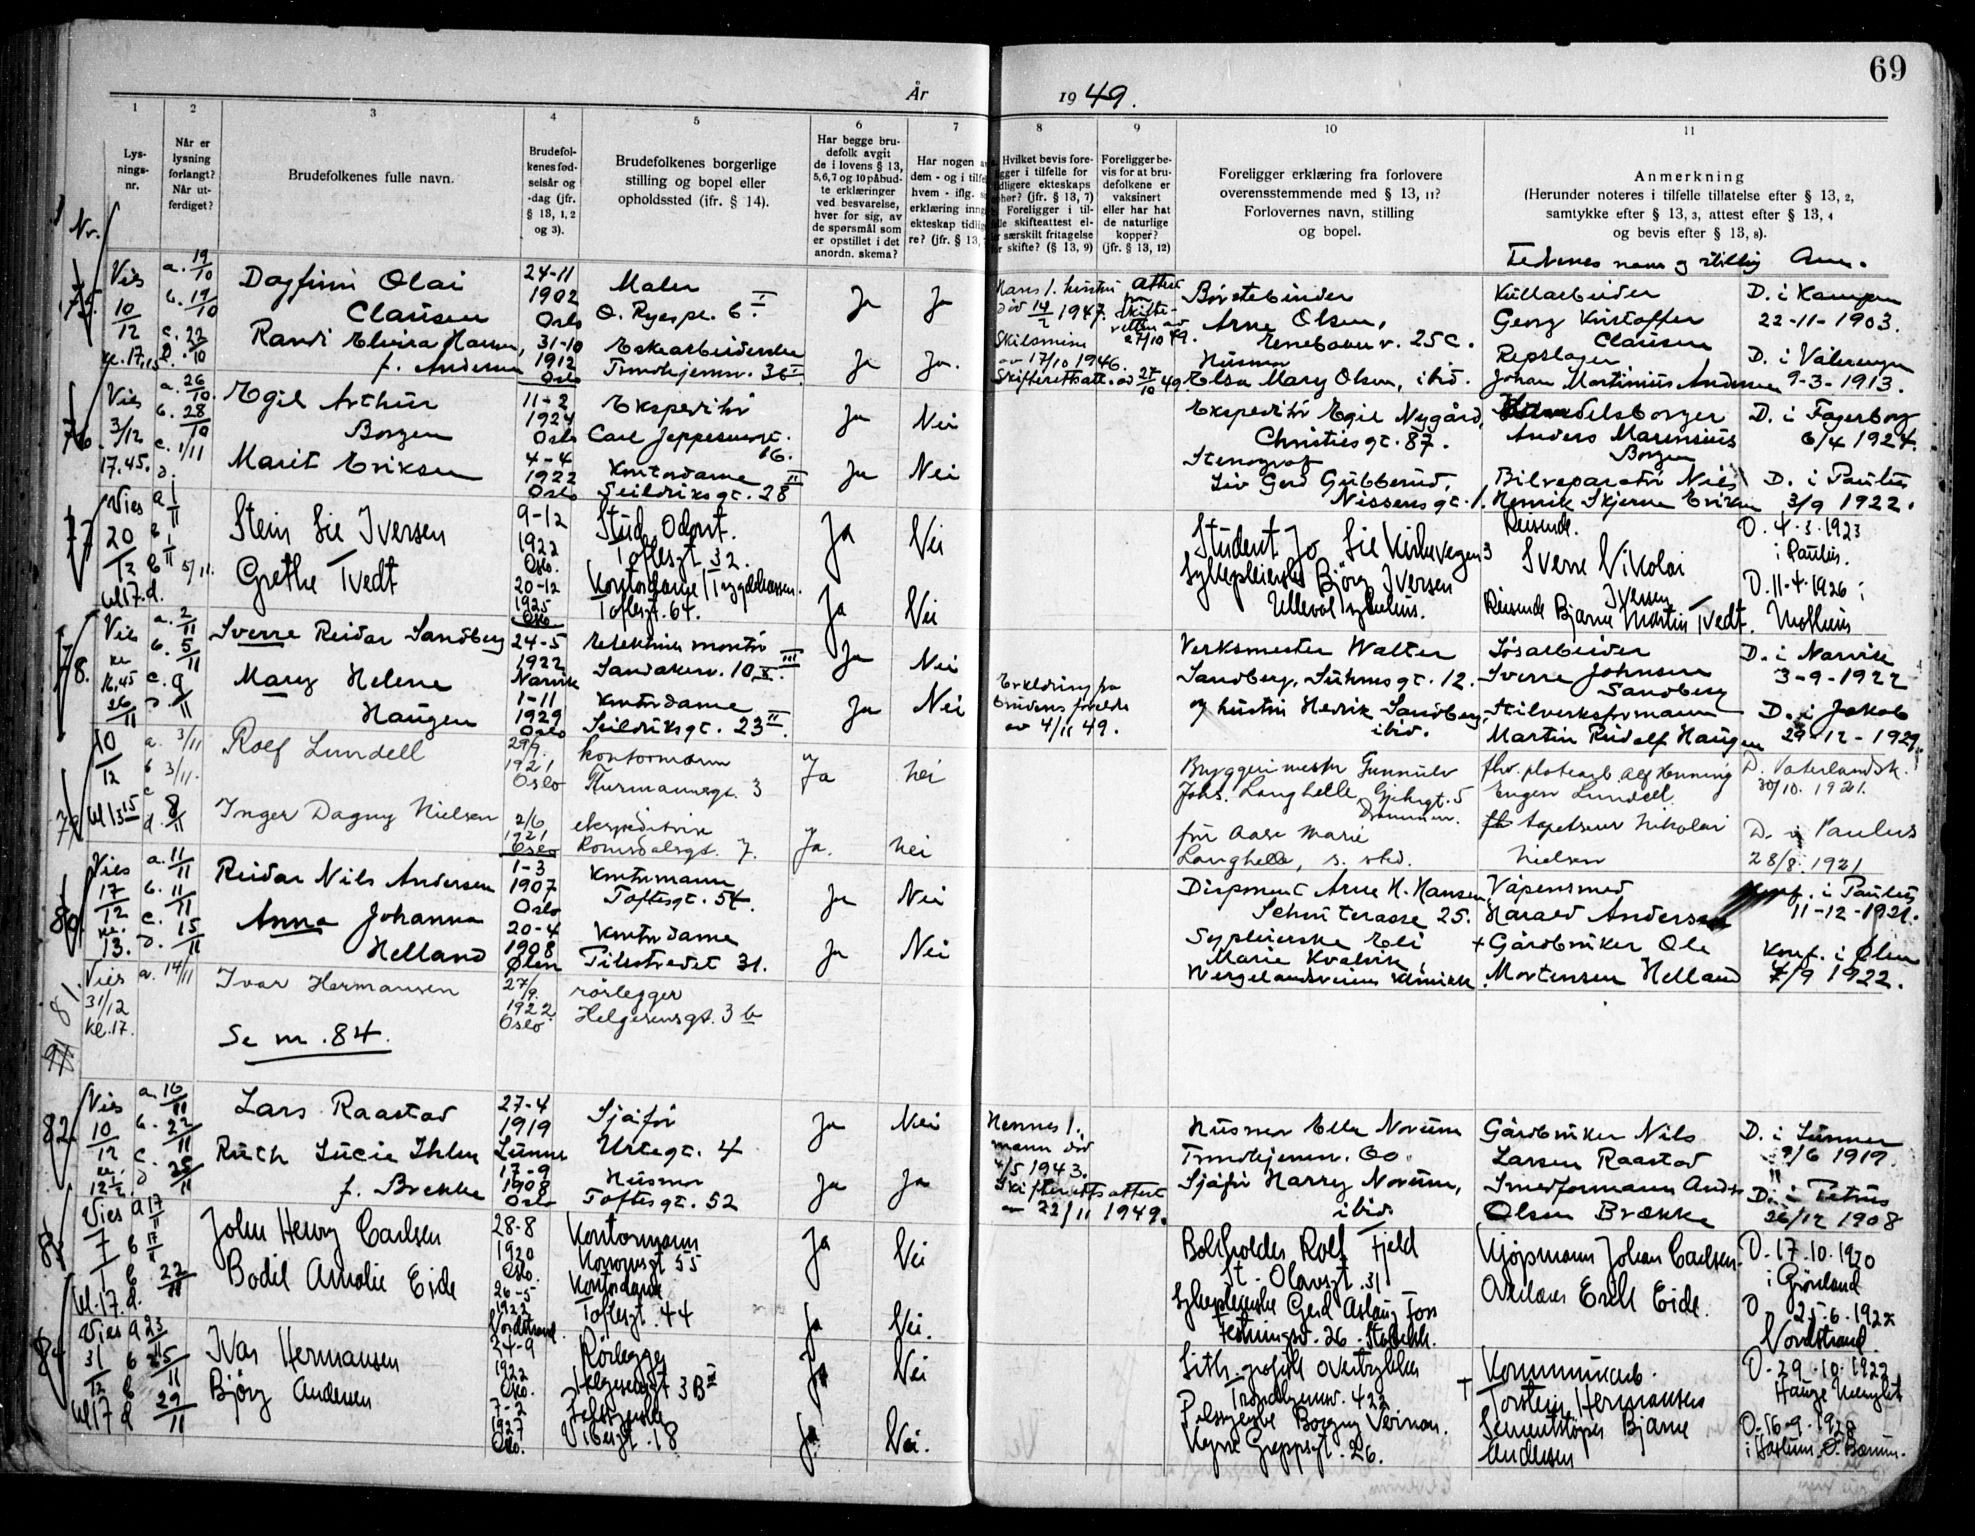 69
År 1949.
1
2
3
4
5
6
7
8
9
10
11
Lys-
nings-
nr.
Når er
lysning
forlangt?
Når ut-
ferdiget?
Brudefolkenes fulle navn.
Brudefol-
kenes fød-
selsår og
-dag (jfr.
§ 13, 1, 2
og 3).
Brudefolkenes borgerlige
stilling og bopel eller
opholdssted (ifr. § 14).
Har begge bru-
defolk avgit
de i lovens § 13,
5,6,7 og 10 påbud-
te erklæringer
ved besvarelse,
hver for sig, av
de spørsmål som
er opstillet i det
anordn. skema?
Har nogen
dem - og i tilfe
hvem - iflg.
erklæring inng
ekteskap tidlig
re? (jfr. § 13,
Hvilket bevis fore-
ligger i tilfelle for
tidligere ekteskaps
ophør? (jfr. § 13, 7)
Foreligger i til-
felle skifteattest el-
ler særskilt fritagelse
for skifte? (§ 13, 9)
Foreligger be-
vis for at bru-
defolkene er
vaksinert
eller har hat
de naturlige
kopper?
(jfr. § 13, 12)
Foreligger erklæring fra forlovere
overensstemmende med § 13, 11?
Forlovernes navn, stilling
og bopel.
Anmerkning
(Herunder noteres i tilfelle tillatelse efter § 13, 2,
samtykke efter § 13, 3, attest efter § 13, 4
og bevis efter § 13, 8).
Fedrenes navn og stilling Anm.
Nr.
75.
Vies
10/12
kl. 17,15
a. 19/10
b. 19/10
c. 22/10
Dagfinn Olai
Clausen
Randi Elvira Hansen,
f. Andersen
24-11
1902
Oslo
31-10
1912
Oslo
Maler
O. Ryespl. 6 I.
Eskearbeiderske
Trondhjemsv. 36 I.
Ja
Ja
Ja
Ja.
Hans 1. hustru
død 14/2 1947.
Attest
fra
Skifte-
retten av
27/10 49.
Skilsmisse
av 17/10 1946.
Skifterettsatt. av 27/10 49.
Børstebinder
Arne Olsen,
Enebakkv. 25 C.
Husmor
Elsa Mary Olsen, ibid.
Kullarbeider
Georg Kristoffer
Clausen
Repslager
Johan Martinius Andersen
D. i Kampen
22-11-1903.
D. i Vålerengen
9-3-1913.
76.
Vies
3/12
17.45.
a. 26/10
b. 28/10
c. 1/11
d.
Egil Arthur
Borgen
Marit Eriksen
11-2
1924
Oslo
4-4
1922
Oslo
Ekspeditør
Carl Jeppesensgt.
16.
Kontordame
Seilduksgt. 28 II
Ja
Nei
Ja
Nei
Ekspeditør Egil Nygård,
Christiesgt. 87.
Stenograf
Liv Gerd Gubberud,
Nissensgt. 1.
Handelsborger
Anders Marensius
Borgen
Bilreparatør Nils
Henrik Skjerne Eriksen
D. i Fagerborg
6/4 1924.
D. i Paulus
3/9 1922.
77
Vies
20/12
kl 17.
a 1/11
b 1/11
c 5/11.
d.
Stein Lie Iversen
Grethe Tvedt
9-12
1922
Oslo.
20-12
1925
Oslo
Stud. Odont.
Toftesgt 32.
Kontordame Trygdekassen.
Toftesgt. 64.
Ja
Nei
Ja
Nei
Student Jo Lie Kirkevegen 3
Sykepleierske Björg Iversen
Ullevål sykehus.
Reisende.
Sverre Nikolai
Iversen
Reisende Bjarne Martin Tvedt.
D. 4.3.1923
i Paulus.
D. 11-4-1926 i
78.
Vies
kl.
16,45
26/11
a. 2/11
b. 5/11
c. 9
d. 11
Sverre Reidar Sandberg
Mary Helene
Haugen
24-5
1922
Narvik
1-11
1929
Oslo
elektriker montør
Sandakerv. 10
Kontordame
Seilduksgt. 23 II.
Ja
Nei
Ja
Nei
Erklæring fra
brudens foreldre
av 4/11 49.
Verksmester Walter
Sandberg, Suhmsgt. 12.
og hustru Hedvik Sandberg,
ibid.
Løsarbeider
Sverre Johnsen
Sandberg
Stilverksformann
Martin Rudolf Haugen
D. i Narvik
3-9-1922
D. i Jakob
29-12-1929.
79
10/12
kl 13 15
a. 3/11
b 3/11.
c
d. 8/11
Rolf Lundell
Inger Dagny Nielsen
29/9.
1921
Oslo
2/6
1921
Oslo
kontormann
Thurmannsgt. 3
ekspeditrise
Romsdalsgt. 7.
Ja
nei
Ja.
nei
Bryggerimester Gunnulv
Johs. Langhelle,
Drammen.
fru Aase Marie
Langhelle, s. sted.
fhv. platearb. Alf Henning
Eugen Lundell.
tapetserer Nikolai
Nielsen
D. Vaterlandsk.
30/10. 1921.
D. i Paulus
28/8. 1921
80.
Vies
17/12
kl.
13.
a. 11/11
b. 11/11
c.
d. 15/11
Reidar Nils Andersen
Anna Johanna
Helland
1-3
1907
Oslo
20-4
1908
Ølen
Kontormann
Toftesgt. 54.
Kontordame
Pilestredet 31.
Ja
Nei
Ja
Nei
Disponent Arne H. Hansen,
Schouterasse 25.
Sypleierske Eli
Marie Kvalvik,
Wergelandsveiens klinikk.
Våpensmed
Harald Andersen
+ Gårdbruker Ole
Mortensen Helland
Konf. i Paulus
11-12-1921.
Konf. i Ølen
7/9 1922.
81.
Vies
31/12
kl. 17.
a. 14/11
Ivar Hermansen
Se nr. 84.
27/9.
1922
Oslo
rørlegger
Helgesensgt. 3 b
82.
Vies
10/12
kl.
12½
a. 16/11
b. 22/11
c.
d 25/11
Lars Raastad
Ruth Lucie Ihlen
f. Brekke
27-4
1919
Lunner
17-9
1908
Oslo
Sjåfør
Urtegt. 4
Husmor
Toftesgt. 52
Ja
Nei
Ja
Ja
Hennes 1.
mann død
4/5 1943.
Skifterettsattest
av 22/11 1949.
Husmor Elle Norum
Trondhjemsv. 60.
Sjåfør Harry Norum,
ibid.
Gårdbruker Nils
Larsen Raastad
Smedformann Anders
Olsen Brække
D. i Lunner
9/6 1919.
D. i Petrus
26/12 1908
83
Vies
7/1
kl. 17.
a 17/11
b 17/11
c 22/11
d.
John Henry Carlsen
Bodil Amalie Eide
28-8
1920
Oslo.
26-5
1922
Nordstrand.
Kontormann
Konowsgt 55
Kontordame
Toftesgt. 44
Ja
Nei
Ja
Nei.
Bokholder Rolf Fjeld
St. Olavsgt. 31
Sykepleierske Gerd Aslaug Foss
26. Stabekk.
Kjøpmann Johan Carlsen.
Erik Eide.
D. 17.10.1920
i Grönland
D. 25.6.1922
Nordstrand.
84
Vies
31/12
kl 17
a 23/11
b 25/11
c
d 29/11
Ivar Hermansen
Bjørg Andersen
24-9
1922
Oslo.
7-2
1927
Oslo.
Rørlegger
Helgesensgt 3 B III
Pelssyerske
Vibesgt. 18
Ja
Nei
Ja.
Nei.
Litografisk overtrykker
Trondhjemsv. 42
Pelssyerske Borgny Vernan.
Kommunearb.
† Torstein Hermansen
Sementstøper Bjarne
Andersen
D. 29.10.1922
Hauge menighet
D. 16.9.1928
i Haslum, Ø. Bærum.